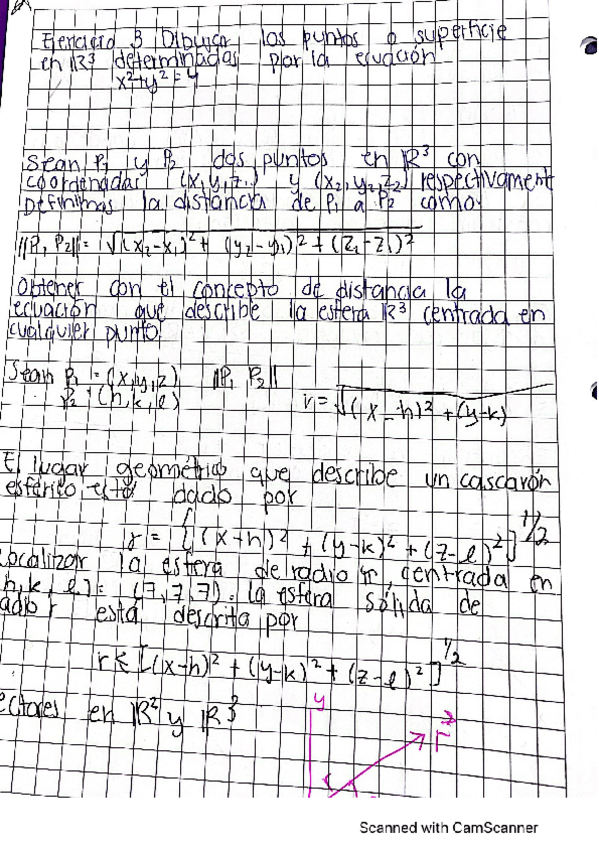 Ejercicio 3 Dibuja los puntos o superficie
en ℝ3 determinadas por la ecuación
x²+y²=4
Sean P₁ y P₂ dos puntos en ℝ³ con
coordenadas (x₁y₁z₁) y (x₂,y₂,z₂) respectivamente
Definimos la distancia de P₁ a P₂ como:
||P₁ P₂||= √(x₂-x₁)²+ (y₂-y₁)²+(z₂-z₁)²
Obtener con el concepto de distancia la
ecuación que describe la esfera ℝ³ centrada en
cualquier punto
Sean P₁=(x,y,z) ||P₁ P₂||
P₂=(h,k,l) r=√(x-h)²+(y-k)
El lugar geométrico que describe un cascarón
esférico está dado por
r= [(x+h)² +(y-k)²+(z-l)²]^1/2
Localizar la esfera de radio r, centrada en
h,k,l)=(7,7,7). la esfera sólida de
adio r está descrita por
r≤[(x-h)²+(y-k)²+(z-l)²]^1/2
ectores en ℝ² y ℝ³
y
r⃗
Scanned with CamScanner